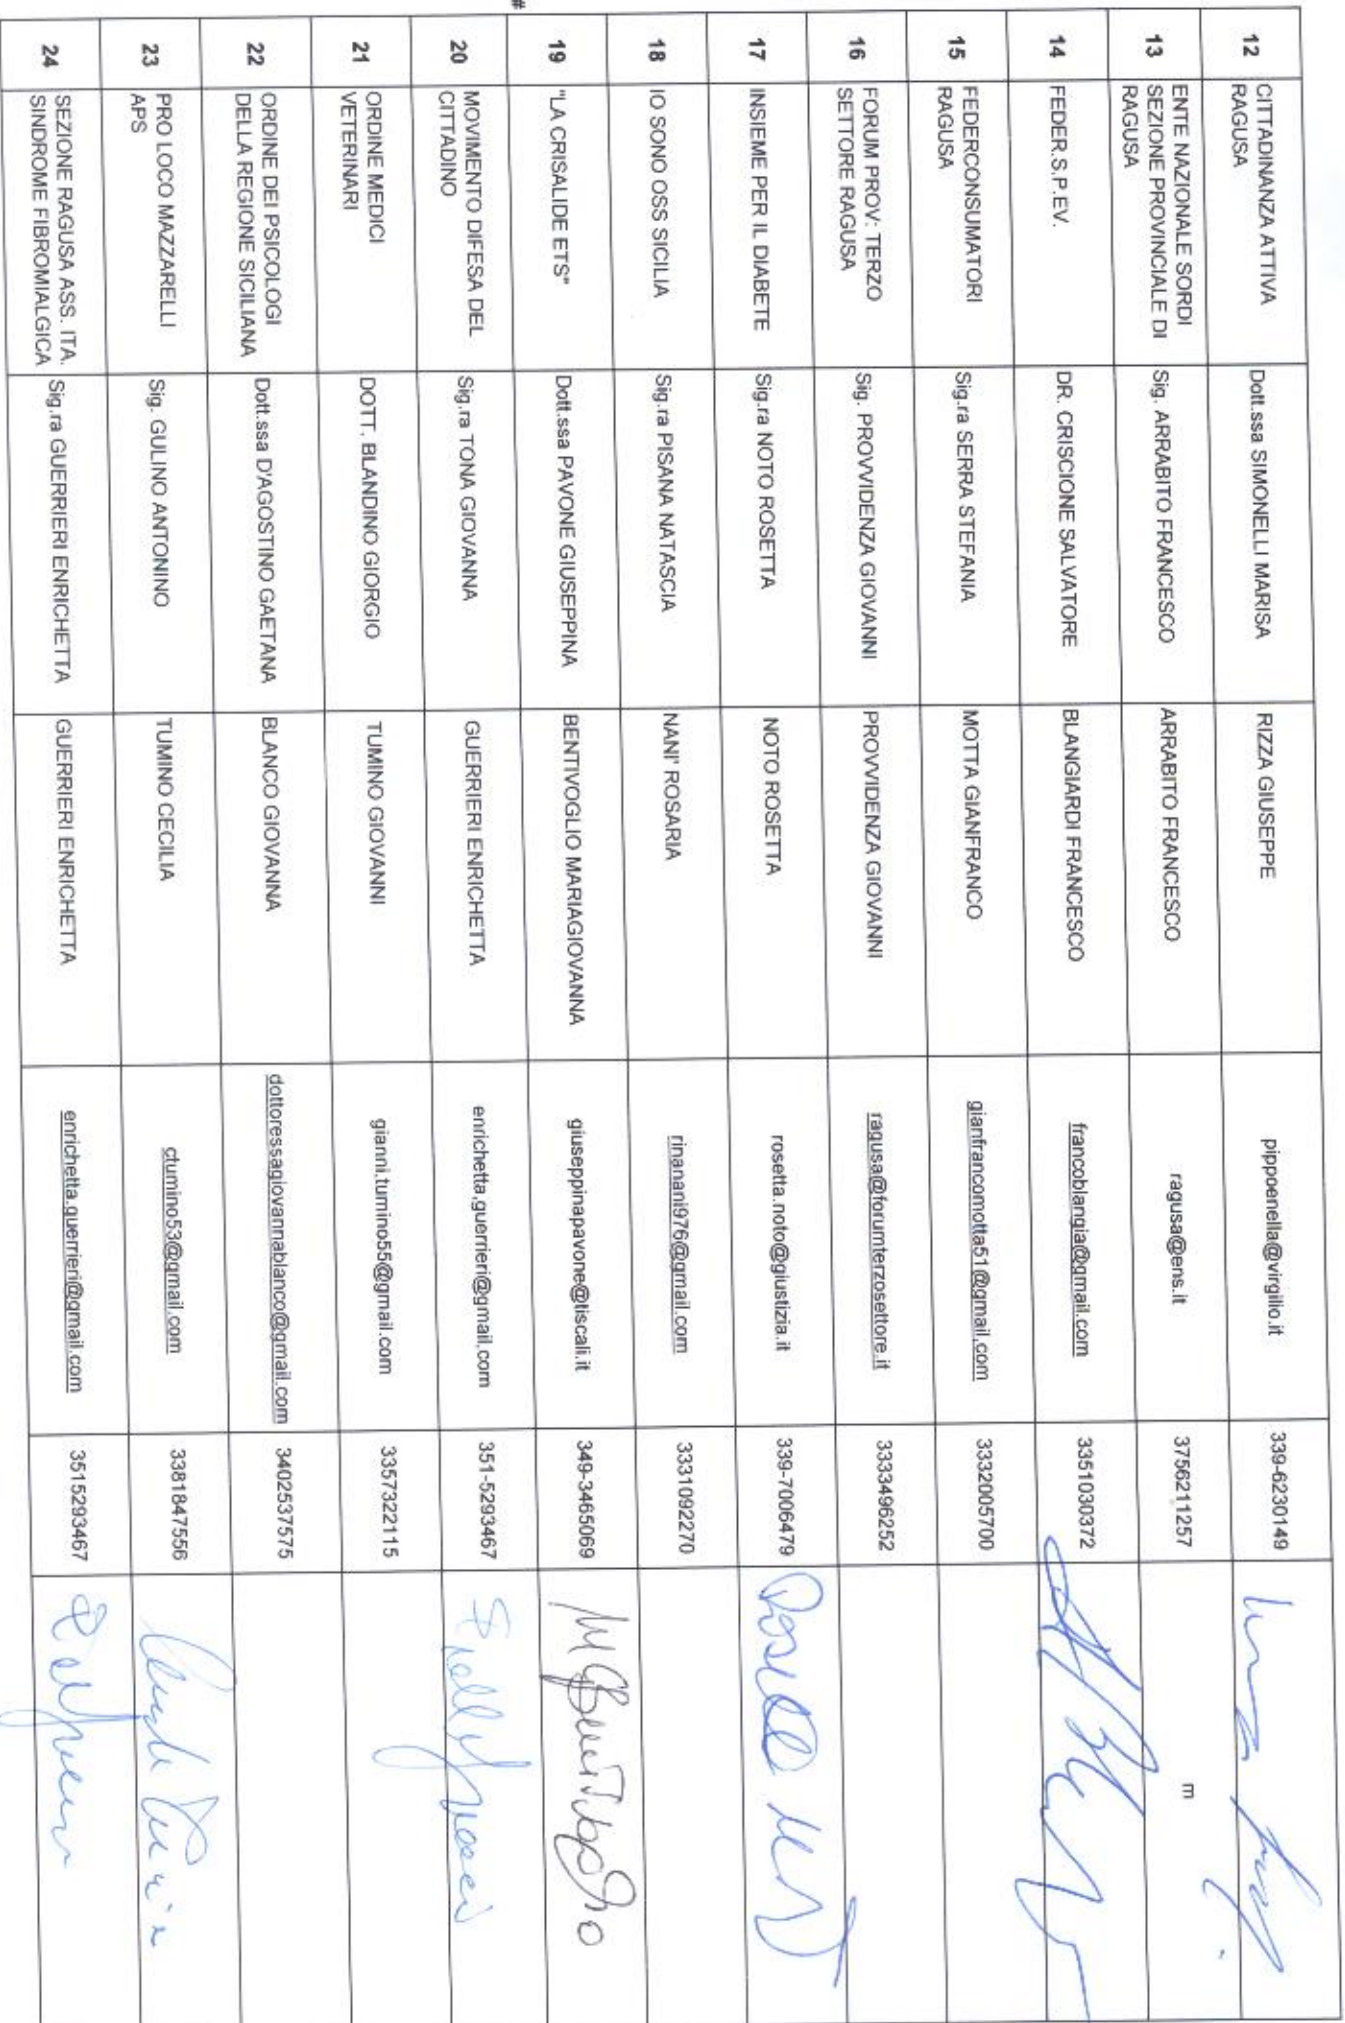 #
12 CITTADINANZA ATTIVA
RAGUSA Dott.ssa SIMONELLI MARISA RIZZA GIUSEPPE pippoenella@virgilio.it 339-6230149
13 ENTE NAZIONALE SORDI
SEZIONE PROVINCIALE DI
RAGUSA Sig. ARRABITO FRANCESCO ARRABITO FRANCESCO ragusa@ens.it 3756211257 m
14 FEDER.S.P.EV. DR. CRISCIONE SALVATORE BLANGIARDI FRANCESCO francoblangia@gmail.com 3351030372
15 FEDERCONSUMATORI
RAGUSA Sig.ra SERRA STEFANIA MOTTA GIANFRANCO gianfrancomotta51@gmail.com 3332005700
16 FORUM PROV: TERZO
SETTORE RAGUSA Sig. PROVVIDENZA GIOVANNI PROVVIDENZA GIOVANNI ragusa@forumterzosettore.it 3333496252
17 INSIEME PER IL DIABETE Sig.ra NOTO ROSETTA NOTO ROSETTA rosetta.noto@giustizia.it 339-7006479
18 IO SONO OSS SICILIA Sig.ra PISANA NATASCIA NANI' ROSARIA rinanani976@gmail.com 3331092270
19 "LA CRISALIDE ETS" Dott.ssa PAVONE GIUSEPPINA BENTIVOGLIO MARIAGIOVANNA giuseppinapavone@tiscali.it 349-3465069
20 MOVIMENTO DIFESA DEL
CITTADINO Sig.ra TONA GIOVANNA GUERRIERI ENRICHETTA enrichetta.guerrieri@gmail.com 351-5293467
21 ORDINE MEDICI
VETERINARI DOTT. BLANDINO GIORGIO TUMINO GIOVANNI gianni.tumino55@gmail.com 3357322115
22 ORDINE DEI PSICOLOGI
DELLA REGIONE SICILIANA Dott.ssa D'AGOSTINO GAETANA BLANCO GIOVANNA dottoressagiovannablanco@gmail.com 3402537575
23 PRO LOCO MAZZARELLI
APS Sig. GULINO ANTONINO TUMINO CECILIA ctumino53@gmail.com 3381847556
24 SEZIONE RAGUSA ASS. ITA.
SINDROME FIBROMIALGICA Sig.ra GUERRIERI ENRICHETTA GUERRIERI ENRICHETTA enrichetta.guerrieri@gmail.com 3515293467